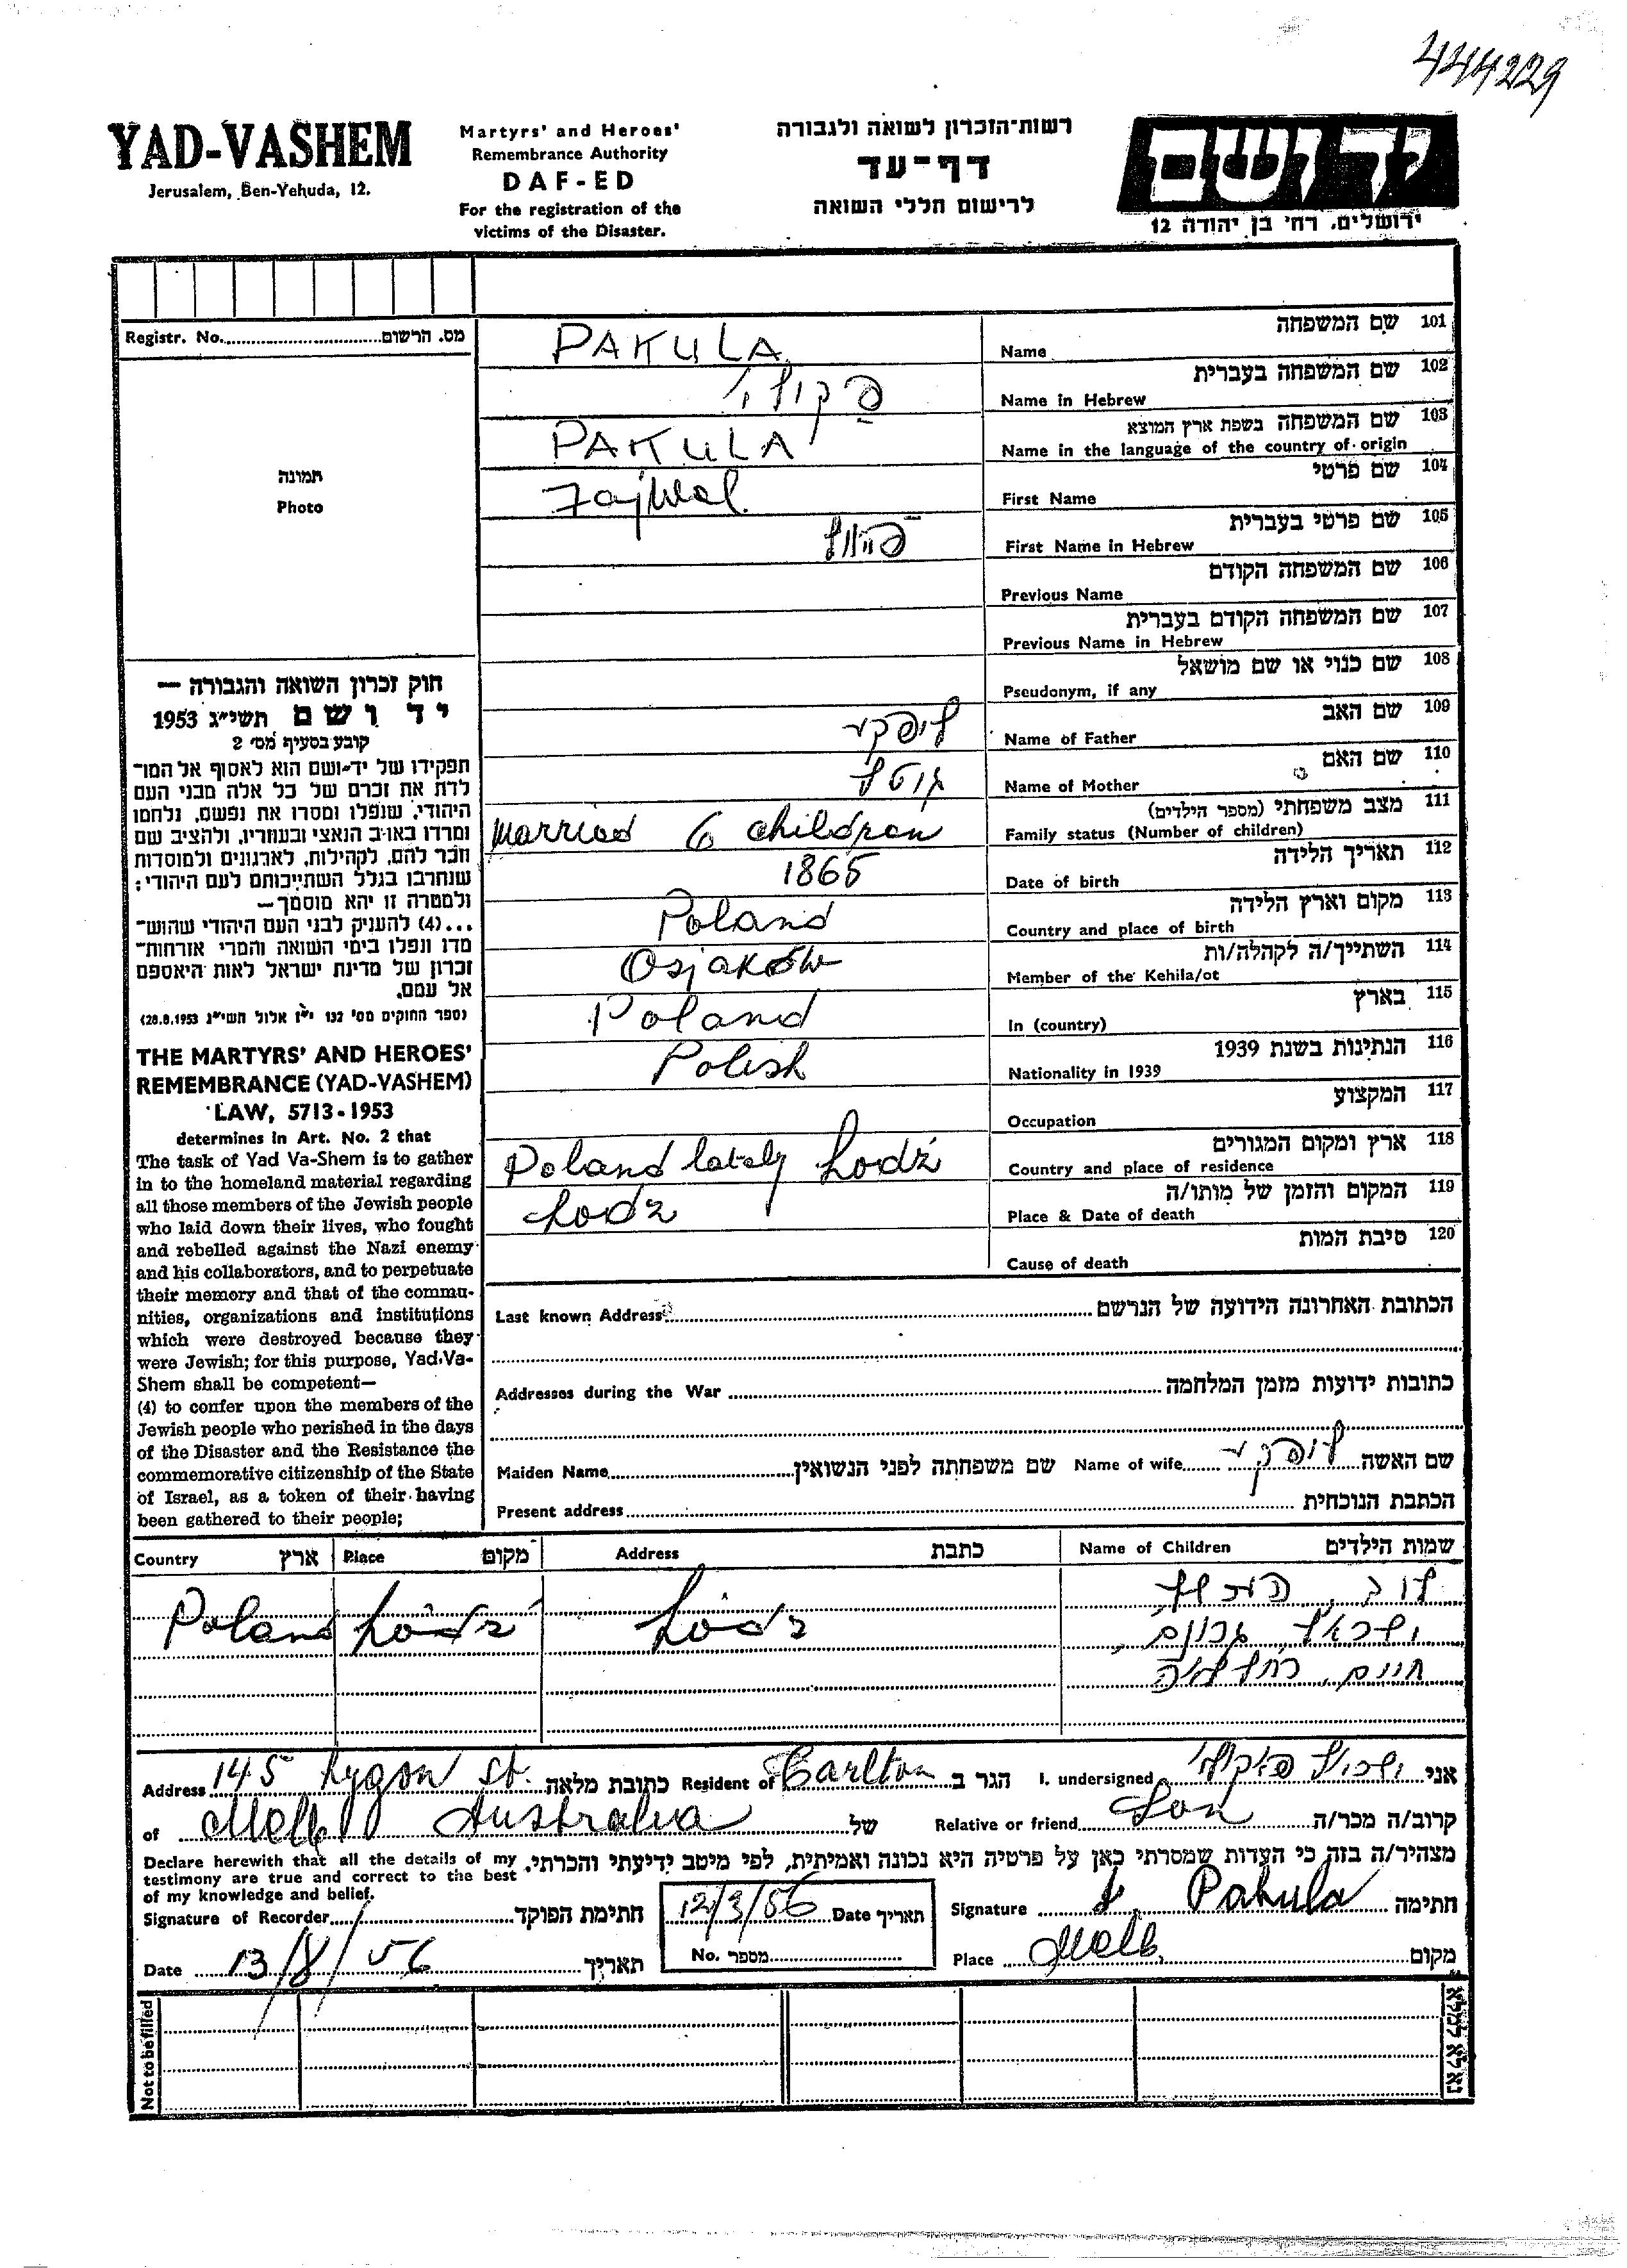 444229
YAD-VASHEM
Jerusalem, Ben-Yehuda, 12.
Martyrs' and Heroes'
Remembrance Authority
DAF-ED
For the registration of the
victims of the Disaster.
רשות־הזכרון לשואה ולגבורה
דף־עד
לרישום חללי השואה
יד ושם
ירושלים, רח' בן יהודה 12
Registr. No. מס. הרשום
תמונה
Photo
חוק זכרון השואה והגבורה —
יד ושם תשי״ג 1953
קובע בסעיף מס' 2
תפקידו של יד־ושם הוא לאסוף אל המו־
לדת את זכרם של כל אלה מבני העם
היהודי, שנפלו ומסרו את נפשם, נלחמו
ומרדו באויב הנאצי ובעוזריו, ולהציב שם
וזכר להם, לקהילות, לארגונים ולמוסדות
שנחרבו בגלל השתייכותם לעם היהודי;
ולמטרה זו יהא מוסמך—
...(4) להעניק לבני העם היהודי שהוש־
מדו ונפלו בימי השואה והמרי אזרחות־
זכרון של מדינת ישראל לאות היאספם
אל עמם.
(ספר החוקים מס' 132 י״ז אלול תשי״ג 28.8.1953)
THE MARTYRS' AND HEROES'
REMEMBRANCE (YAD-VASHEM)
LAW, 5713-1953
determines in Art. No. 2 that
The task of Yad Va-Shem is to gather
in to the homeland material regarding
all those members of the Jewish people
who laid down their lives, who fought
and rebelled against the Nazi enemy
and his collaborators, and to perpetuate
their memory and that of the commu-
nities, organizations and institutions
which were destroyed because they
were Jewish; for this purpose, Yad-Va-
Shem shall be competent—
(4) to confer upon the members of the
Jewish people who perished in the days
of the Disaster and the Resistance the
commemorative citizenship of the State
of Israel, as a token of their having
been gathered to their people;
PAKULA Name שם המשפחה 101
Name in Hebrew שם המשפחה בעברית 102
PAKULA Name in the language of the country of origin שם המשפחה בשפת ארץ המוצא 103
Fajwel First Name שם פרטי 104
פייוול First Name in Hebrew שם פרטי בעברית 105
Previous Name שם המשפחה הקודם 106
Previous Name in Hebrew שם המשפחה הקודם בעברית 107
Pseudonym, if any שם כנוי או שם מושאל 108
Name of Father שם האב 109
Name of Mother שם האם 110
Married 6 children Family status (Number of children) מצב משפחתי (מספר הילדים) 111
1865 Date of birth תאריך הלידה 112
Poland Country and place of birth מקום וארץ הלידה 113
Osjaków Member of the Kehila/ot השתייך/ה לקהלה/ות 114
Poland In (country) בארץ 115
Polish Nationality in 1939 הנתינות בשנת 1939 116
Occupation המקצוע 117
Poland lately Łodź Country and place of residence ארץ ומקום המגורים 118
Łodz Place & Date of death המקום והזמן של מותו/ה 119
Cause of death סיבת המות 120
Last known Address הכתובת האחרונה הידועה של הנרשם
Addresses during the War כתובות ידועות מזמן המלחמה
Maiden Name שם משפחתה לפני הנשואין Name of wife שם האשה
Present address הכתבת הנוכחית
Country ארץ Place מקום Address כתבת Name of Children שמות הילדים
Poland Łódź Łódz
ישראל
חיים, רחל
Address 145 Lygon St. כתובת מלאה Resident of Carlton הגר ב I, undersigned אני
of Melb Australia של Relative or friend Son קרוב/ה מכר/ה
מצהיר/ה בזה כי העדות שמסרתי כאן על פרטיה היא נכונה ואמיתית, לפי מיטב ידיעתי והכרתי.
Declare herewith that all the details of my
testimony are true and correct to the best
of my knowledge and belief.
Signature of Recorder חתימת הפוקד 12/3/56 Date תאריך Signature Pakula חתימה
Date 13/8/56 תאריך No. מספר Place Melb. מקום
Not to be filled
נא לא למלא